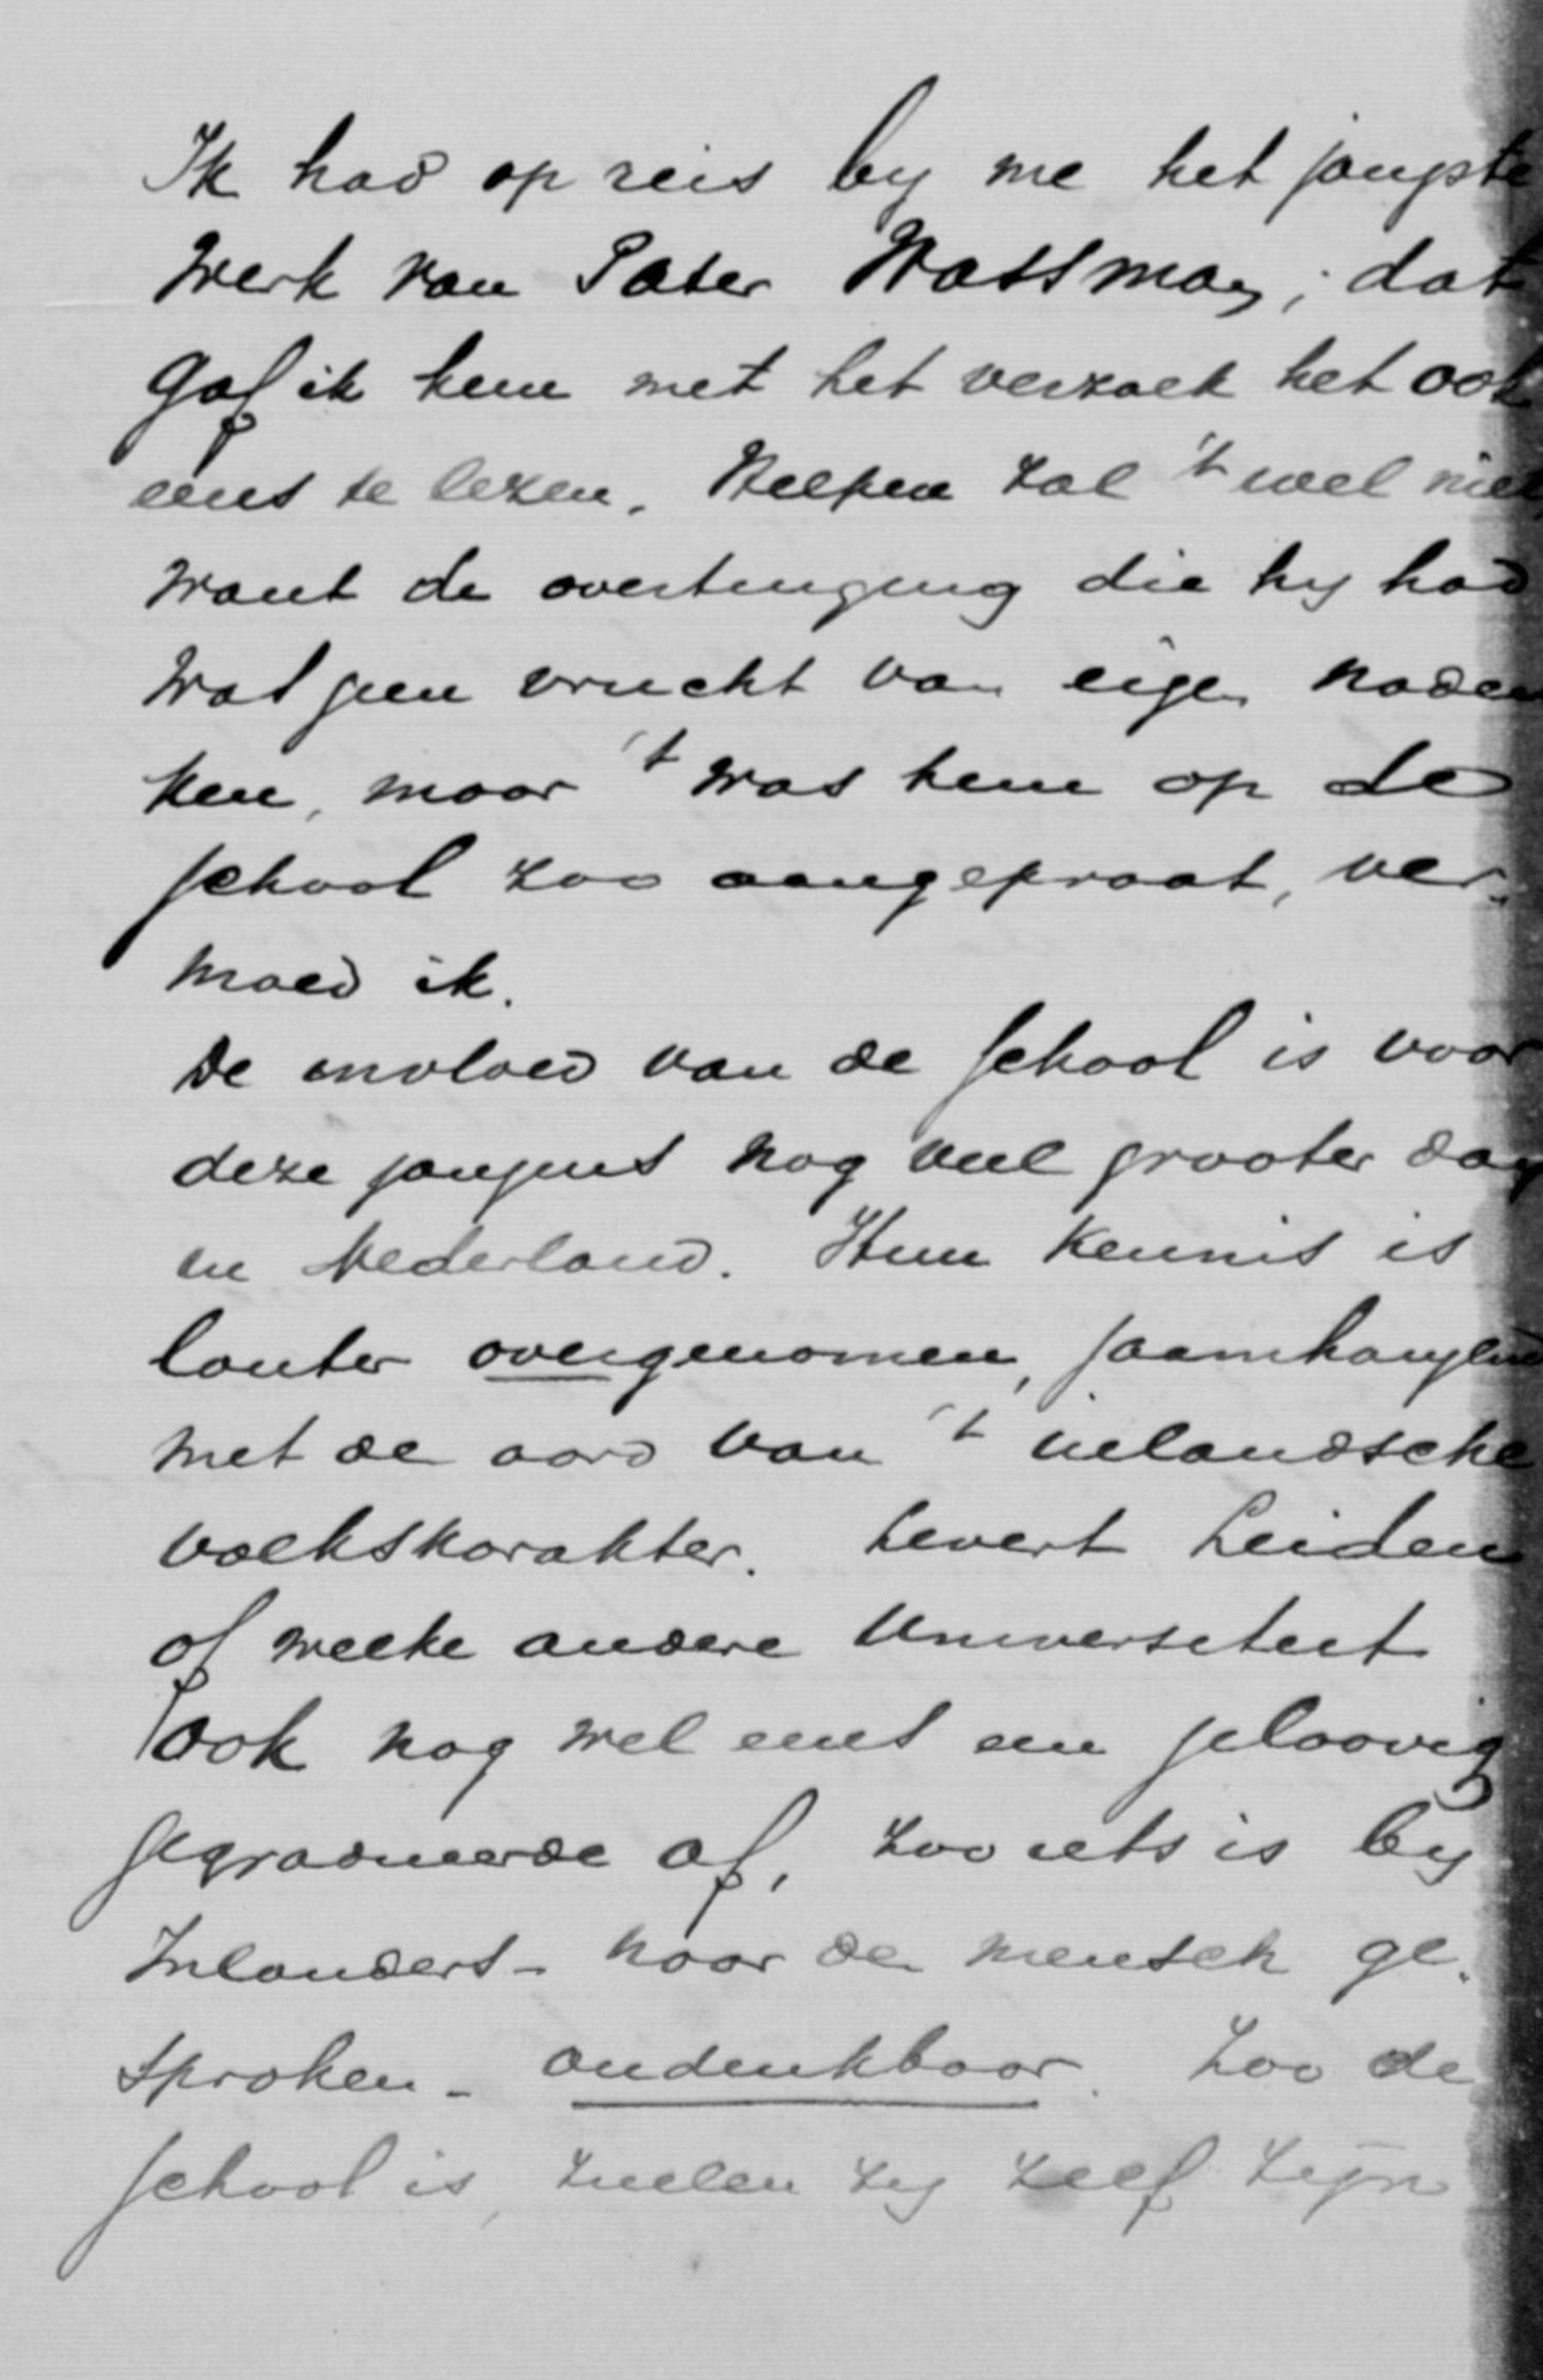 Ik had op reis by me het jongste
werk van Pater Wassman; dat
gaf ik hem met het verzoek het ook
eens te lezen. Helpen zal 't wel niet,
want de overtuiging die hy had
was geen vrucht van eigen naden
ken, maar 't was hem op de
school zoo aangepraat, ver-
moed ik.
De invloed van de school is voor
deze jongens nog veel grooter dan
in Nederland. Hun kennis is
louter overgenomen, saamhangend
met de aard van 't inlandsche
volkskarakter. Levert Leiden
of welke andere Universiteit
ook nog wel eens een geloovig
gegradueerde af, zoo iets is by
Inlanders - naar den mensch ge-
sproken - ondenkbaar. Zoo de
school is, zullen zy zelf zijn